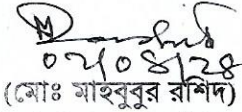 ০২/০৪/২৪
(মোঃ মাহবুবুর রশিদ)